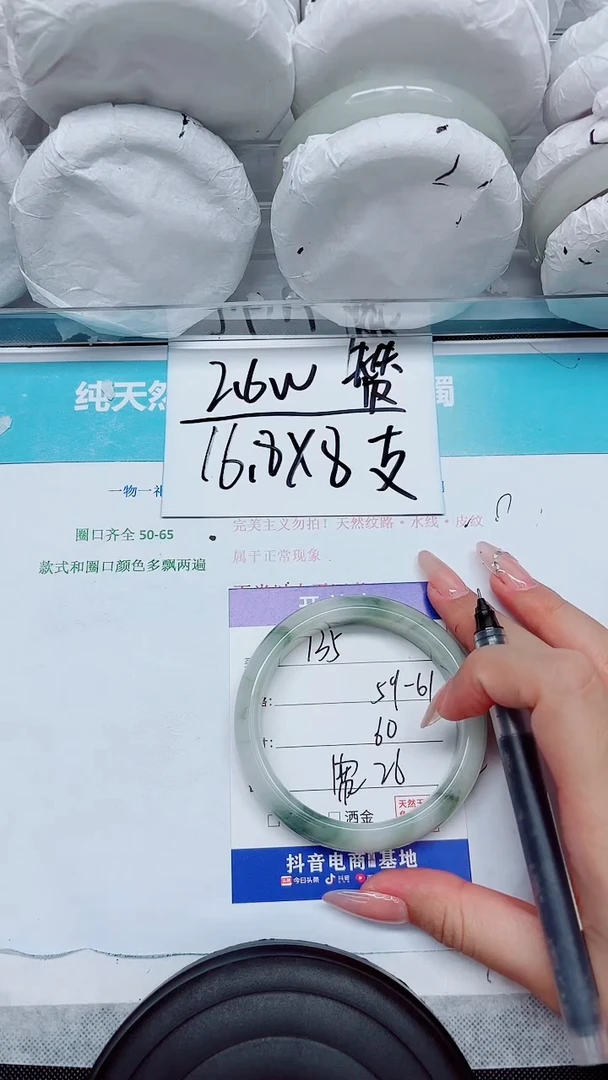 2.6w 赞
16.8X8支
纯天然
镯
一物一
圈口齐全 50-65
完美主义勿拍！天然纹路·水线·皮纹
款式和圈口颜色多飘两遍
属于正常现象
135
59-61
60
26
洒金
天然
抖音电商 基地
今日头条 抖音